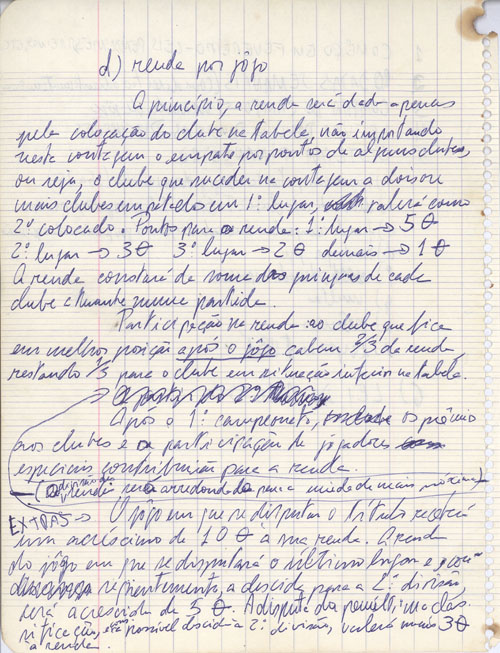 d) renda por jôgo
A princípio, a renda será dada apenas
pela colocação do clube na tabela, não importando
nesta contagem o empate por pontos de alguns clubes,
ou seja, o clube que suceder na contagem a dois ou
mais clubes empatados em 1º lugar, valerá como
2º colocado. Pontos para a renda: 1º lugar → 5 θ
2º lugar → 3 θ 3º lugar → 2 θ demais → 1 θ
A renda constará da soma dos de cada
clube atuante numa partida.
Participação na renda: ao clube que fica
em melhor posição após o jôgo cabem 2/3 da renda
restando 1/3 para o clube em situação inferior na tabela.
Após o 1º campeonato, os prêmio
aos clubes e a participação de jogadores
especiais contribuirão para a renda.
(a renda será arredondada para a unidade mais próxima)
EXTRAS → O jôgo em que se disputar o título receberá
um acréscimo de 10 θ à sua renda. A renda
do jôgo em que se disputará o último lugar e,
a descida para a 2ª divisão,
será acrescida de 3 θ. A disputa da
possível descida à 2ª divisão, valerá mais 3 θ
à renda.